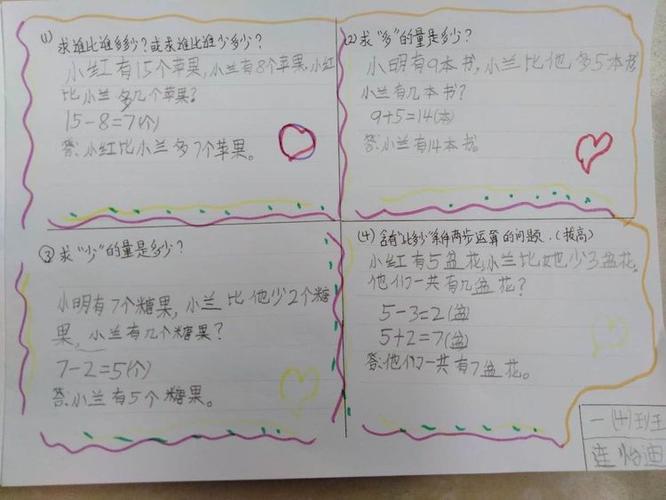 (1) 求谁比谁多多少?或求谁比谁少多少?
小红有15个苹果,小兰有8个苹果,小红
比小兰多几个苹果?
15-8=7(个)
答:小红比小兰多7个苹果。
(2) 求"多"的量是多少?
小明有9本书,小兰比他多5本书
小兰有几本书?
9+5=14(本)
答:小兰有14本书。
③ 求"少"的量是多少?
小明有7个糖果,小兰比他少2个糖
果,小兰有几个糖果?
7-2=5(个)
答:小兰有5个糖果。
(4) 含有"比多少"条件两步运算的问题.(拔高)
小红有5盆花,小兰比她少3盆花,
他们一共有几盆花?
5-3=2(盆)
5+2=7(盆)
答:他们一共有7盆花。
一(4)班
连怡迪